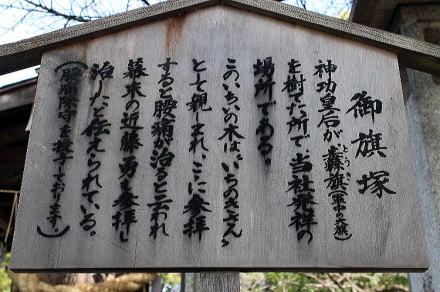 御旗塚
神功皇后が纛旗(軍中の大旗)
とうき
を樹た所で、当社発祥の
場所である。
このいちいの木は、"いちのきさん"
とて親しまれ、ここに参拝
すると腰痛が治ると云われ
幕末の近藤勇も参拝し
治したと伝えられている。
(腰痛除守を授与しております。)